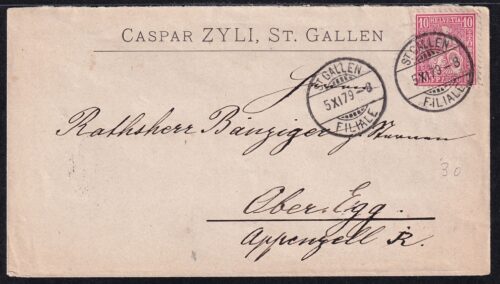 10 HELVETIA 10
CASPAR ZYLI, ST. GALLEN
ST. GALLEN
5.XI.79.-8
FILIALE
ST. GALLEN
5.XI.79.-8
FILIALE
Herrn
Rathsherr Bänziger z.
Ober Egg.
Appenzell I. R.
30